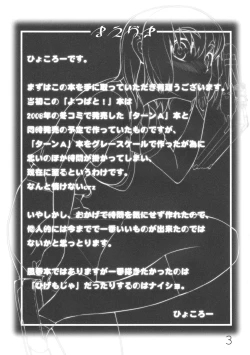 ひょころーです。
まずはこの本を手に取っていただき有難うございます。
当初この「よつばと！」本は
2008年の冬コミで発売した「ターンＡ」本と
同時発売の予定で作っていたものですが、
「ターンＡ」本をグレースケールで作ったが為に
思いのほか時間が掛かってしまい、
現在に至るというわけです。
なんと情けないorz
いやしかし、おかげで時間を気にせず作れたので、
個人的には今までで一番いいものが出来たのでは
ないかと思っとります。
本ではありますが一番描きたかったのは
「ひげもじゃ」だったりするのはナイショ。
ひょころー
3